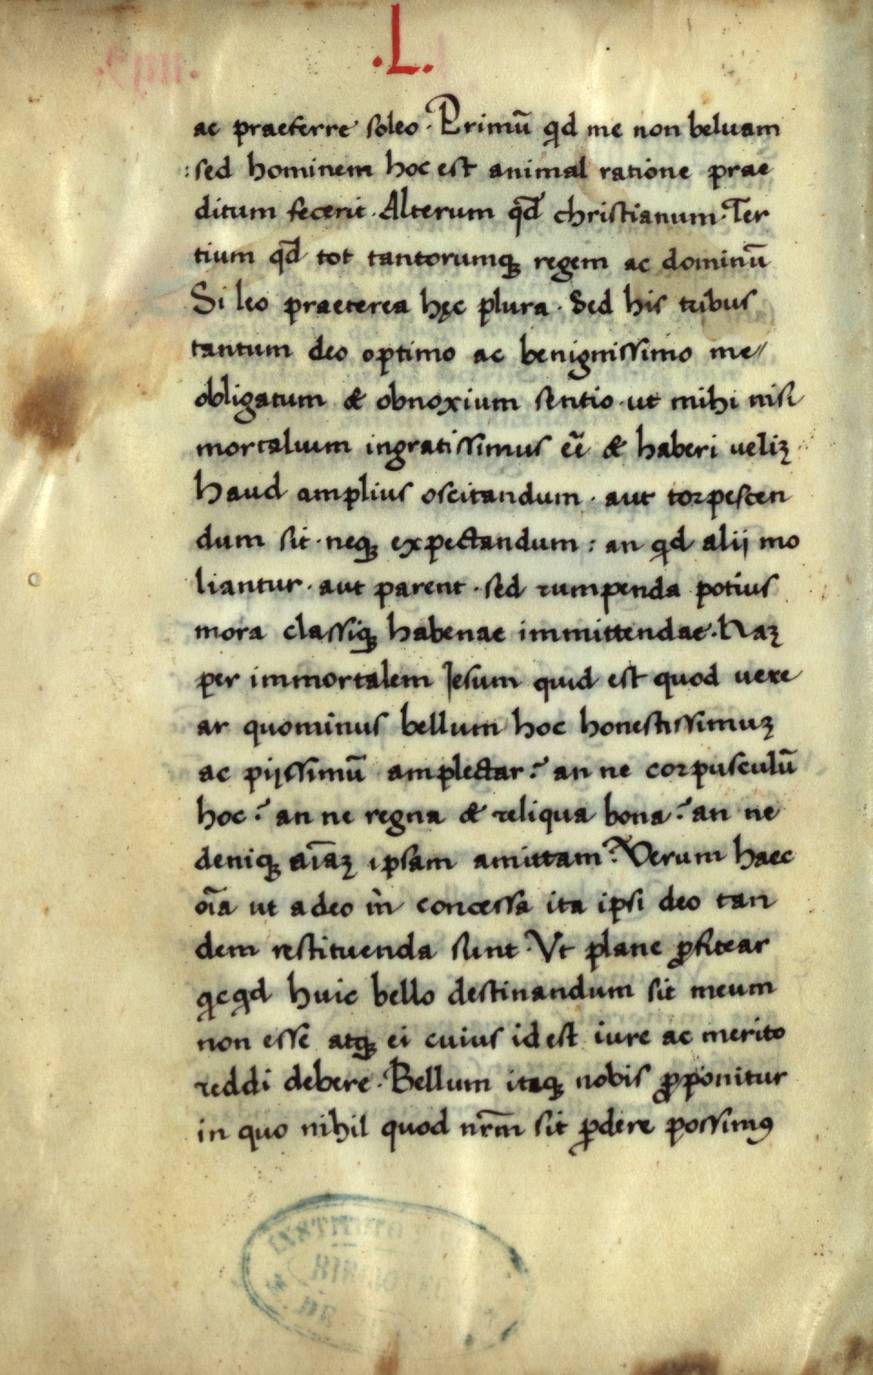 .L.
ac praeferre soleo. Primū qd me non beluam
:sed hominem hoc est animal ratione prae
ditum fecerit. Alterum qd christianum. Ter
tium qd tot tantorumqꝫ regem ac dominū
Si leo praeterea hęc plura. Sed his tribus
tantum deo optimo ac benignissimo me//
obligatum & obnoxium sentio. ut mihi nisi
mortalium ingratissimus eē & haberi ueliꝫ.
Haud amplius oscitandum. aut torpescen
dum sit. neqꝫ expectandum: an qd alij mo
liantur. aut parent. sed rumpenda potius
mora classiqꝫ habenae immittendae. Naꝫ
per immortalem Jesum quid est quod uere
ar quominus bellum hoc honestissimuꝫ
ac pijssimū amplectar? an ne corpusculū
hoc? an ne regna & reliqua bona? an ne
deniqꝫ aīaꝫ ipsam amittam? Verum haec
oīa ut a deo m concessa ita ipsi deo tan
dem restituenda sunt. Vt plane ꝓfitear
qcqd huic bello destinandum sit meum
non essē atqꝫ ei cuius id est iure ac merito
reddi debere. Bellum itaqꝫ nobis ꝓponitur
in quo nihil quod nr̄m sit ꝑdere possimꝰ
INSTITUTO
BIBLIOTEC
DE